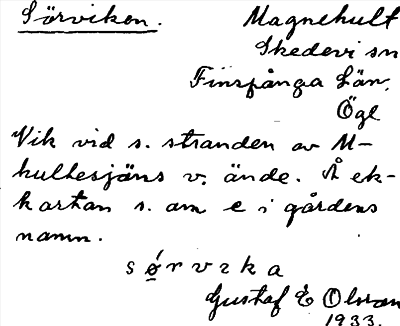 Sörviken.
Magnehult
Skedevi sn
Finspånga Län.
Ögl
Vik vid s. stranden av M-
hultesjöns v. ände. Å ek-
kartan s. om e i gårdens
namn.
sørvɪka
Gustaf E Olsson
1933.